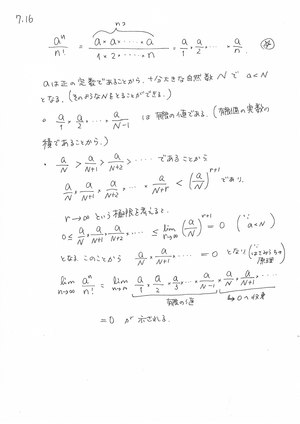 7.16
a^n/n! = a×a×・・・・×a / 1×2×・・・・×n (n コ) = a/1 × a/2 × ・・・ × a/n ⊛
aは正の定数であることから、十分大きな自然数 N で a<N
となる。(そのようなNをとることができる。)
○ a/1 × a/2 × ・・・ × a/(N-1) は有限の値である。(有限値の実数の
積であることから。)
・ a/N > a/(N+1) > a/(N+2) > ・・・・ であることから
a/N × a/(N+1) × a/(N+2) × ・・・ × a/(N+r) < (a/N)^(r+1) であり、
r→∞ という極限を考えると、
0 ≤ a/N × a/(N+1) × a/(N+2) × ・・・ ≤ lim r→∞ (a/N)^(r+1) = 0 (∵ a<N)
となる。このことから a/N × a/(N+1) × ・・・・ = 0 となり (∵はさみうちの原理)
lim n→∞ a^n/n! = lim n→∞ a/1 × a/2 × a/3 × ・・・ × a/(N-1) × a/N × a/(N+1) × ・・・
有限の値 → 0へ収束
= 0 が示される。